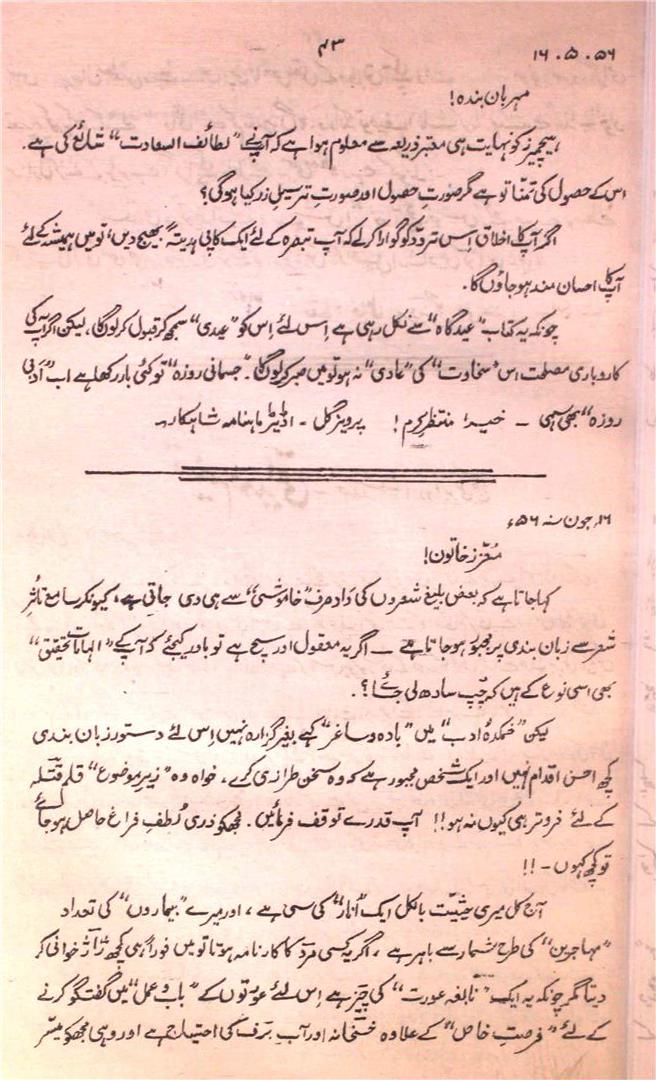 ۴۳
۱۶۔۵۔۵۶
مہربان بندہ!
ہیچمیرز کو نہایت ہی معتبر ذریعہ سے معلوم ہوا ہے کہ آپ نے ”لطائف السعادت“ شائع کی ہے۔
اس کے حصول کی تمنا تو ہے مگر صورتِ حصول اور صورتِ ترسیلِ زر کیا ہوگی؟
اگر آپ کا اخلاق اِس تردّد کو گوارا کرلے کہ آپ تبصرہ کے لئے ایک کاپی ہدیتہً بھیج دیں، تو میں ہمیشہ کے لئے
آپ کا احسان مند ہو جاؤں گا۔
چونکہ یہ کتاب ”عید گاہ“ سے نکل رہی ہے اِس لئے اِس کو ”عیدی“ سمجھ کر قبول کرلوں گا، لیکن اگر آپ کی
کاروباری مصلحت اس ”سخاوت“ کی ”عادی“ نہ ہو تو میں صبر کرلوں گا۔ ”جسمانی روزہ“ تو کئی بار رکھا ہے اب ”ادبی
روزہ“ بھی سہی ۔ خیر! منتظرِ کرم! پرویز گل ۔ اڈیٹر ماہنامہ شاہکار۔
۱۶؍ جون سنہ ۵۶ء
معزز خاتون!
کہا جاتا ہے کہ بعض بلیغ شعروں کی داد صرف ”خاموشی“ سے ہی دی جاتی ہے، کیونکہ سامع تاثرِ
شعر سے زبان بندی پر مجبور ہو جاتا ہے ۔ اگر یہ معقول اور سچ ہے تو باور کیجئے کہ آپ کے ”الہاماتِ تحقیق“
بھی اسی نوع کے ہیں کہ چُپ سادھ لی جائے؟۔
لیکن ”خمکدۂ ادب“ میں ”بادہ و ساغر“ کہے بغیر گزارہ نہیں اِس لئے دستورِ زبان بندی
کچھ احسن اقدام نہیں اور ایک شخص مجبور ہے کہ وہ سخن طرازی کرے، خواہ وہ ”زیرِ موضوع“ قلم
کے لئے فروتر ہی کیوں نہ ہو!! آپ قدرے توقف فرمائیں۔ مجھ کو ذری لُطفِ فراغ حاصل ہو جائے
تو کچھ کہوں ۔ !!
آج کل میری حیثیت بالکل ایک ”انار“ کی سی ہے، اور میرے ”بیماروں“ کی تعداد
”مہاجرین“ کی طرح شمار سے باہر ہے، اگر یہ کسی مرد کا کارنامہ ہوتا تو میں فوراً ہی کچھ ژاژ خوانی کر
دیتا مگر چونکہ یہ ایک ”نابغہ عورت“ کی چیز ہے اِس لئے عورتوں کے ”باب و عمل“ میں گفتگو کرنے
کے لئے ”فرصتِ خاص“ کے علاوہ خسخانہ اور آبِ برف کی احتیاج ہے اور وہی مجھ کو میسّر